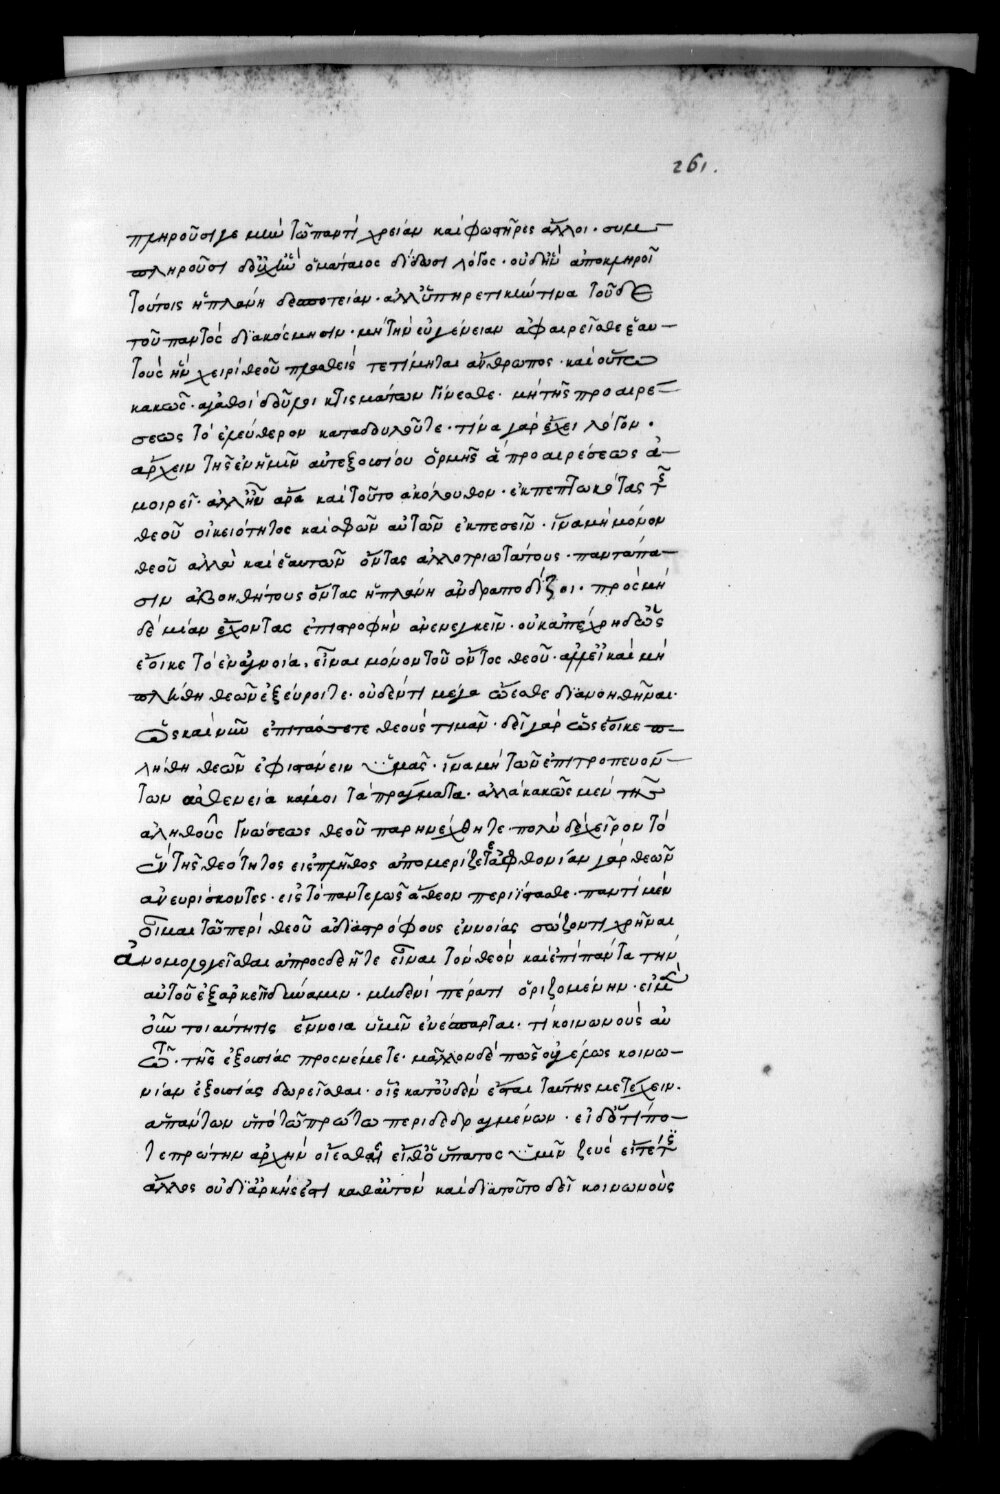 261.
πληροῦσι γε μὴν τῶ παντὶ χρείαν καὶ φωστῆρες ἄλλοι· συμ
πληροῦσι δ' οὐχ ὧν ὁ μάταιος δίδωσι λόγος· οὐδ' ἣν ἀποκληροῖ
τούτοις ἡ πλάνη δεσποτείαν· ἀλλ' ὑπηρετικήν τινα τοῦδε
τοῦ παντὸς διακόσμησιν· μὴ τὴν εὐγένειαν ἀφαιρεῖσθε ἑαυ
τοὺς ἣν χειρὶ θεοῦ πλασθεὶς τετίμηται ἄνθρωπος· καὶ οὕτω
κακῶς· ἀγαθοὶ δοῦλοι κτισμάτων γίνεσθε· μὴ τῆς προαιρέ
σεως τὸ ἐλεύθερον καταδουλοῦτε· τίνα γὰρ ἔχει λόγον·
ἄρχειν τῆς ἐν ἡμῖν αὐτεξουσίου ὁρμῆς ἃ προαιρέσεως ἀ
μοιρεῖ· ἀλλ' ἦν ἄρα καὶ τοῦτο ἀκόλουθον· ἐκπεπτωκότας τῆς
θεοῦ οἰκειότητος καὶ σφῶν αὐτῶν ἐκπεσεῖν· ἵνα μὴ μόνον
θεοῦ ἀλλὰ καὶ ἑαυτῶν ὄντας ἀλλοτριωτάτους· παντάπα
σιν ἀβοηθήτους ὄντας ἡ πλάνη ἀνδραποδίζοι· πρὸς μη
δὲ μίαν ἔχοντας ἐπιστροφὴν ἀνενεγκεῖν· οὐκ ἀπέχρη δ' ὡς
ἔοικε τὸ ἐν ἀγνοία, εἶναι μόνον τοῦ ὄντος θεοῦ· ἀλλ' εἰ καὶ μὴ
πλήθη θεῶν ἐξεύροιτε· οὐδέν τι μέγα ὤεσθε διανοηθῆναι·
ὡς καὶ νῦν ἐπιτάσσετε θεοὺς τιμᾶν· δεῖ γὰρ ὡς ἔοικε π
λήθη θεῶν ἐφιστάνειν ὑμᾶς· ἵνα μὴ τῶν ἐπιτροπευόν
των ἀσθενεία κάμοι τὰ πράγματα· ἀλλὰ κακῶς μὲν τῆς
ἀληθοῦς γνώσεως θεοῦ παρηνέχθητε· πολὺ δὲ χεῖρον τὸ
ἓν τῆς θεότητος εἰς πλῆθος ἀπομερίζετε ἀφθονίαν γὰρ θεῶν
ἀνευρίσκοντες· εἰς τὸ παντελῶς ἄθεον περιΐστασθε· παντὶ μὲν
οἶμαι τῶ περὶ θεοῦ ἀδιαστρόφους ἐννοίας σώζοντι χρῆναι
ἀνομολογεῖσθαι ἀπροσδεῆ τε εἶναι τὸν θεὸν καὶ ἐπὶ πάντα τὴν
αὐτοῦ ἐξαρκεῖν δύναμιν· μηδενὶ πέρατι ὁριζομένην· εἰ μὲν
οὖν τοιαύτη τις ἔννοια ὑμῖν ἐνέσπαρται· τί κοινωνοὺς αὐ
τῶ· τῆς ἐξουσίας προσνέμετε· μᾶλλον δὲ πῶς οὐ γέλως κοινω
νίαν ἐξουσίας δωρεῖσθαι· οἷς κατ' οὐδὲν ἔσται ταύτης μετέχειν·
ἁπάντων ὑπὸ τῶ πρώτω περιδεδραγμένων· εἰ δ' ὅτι πο
τε πρώτην ἀρχὴν οἴεσθαι εἴθ' ὁ ὕπατος ὑμῖν ζεὺς εἴτε τις
ἄλλος οὐ διαρκής ἐστι καθ' αὑτὸν καὶ διὰ τοῦτο δεῖ κοινωνοὺς